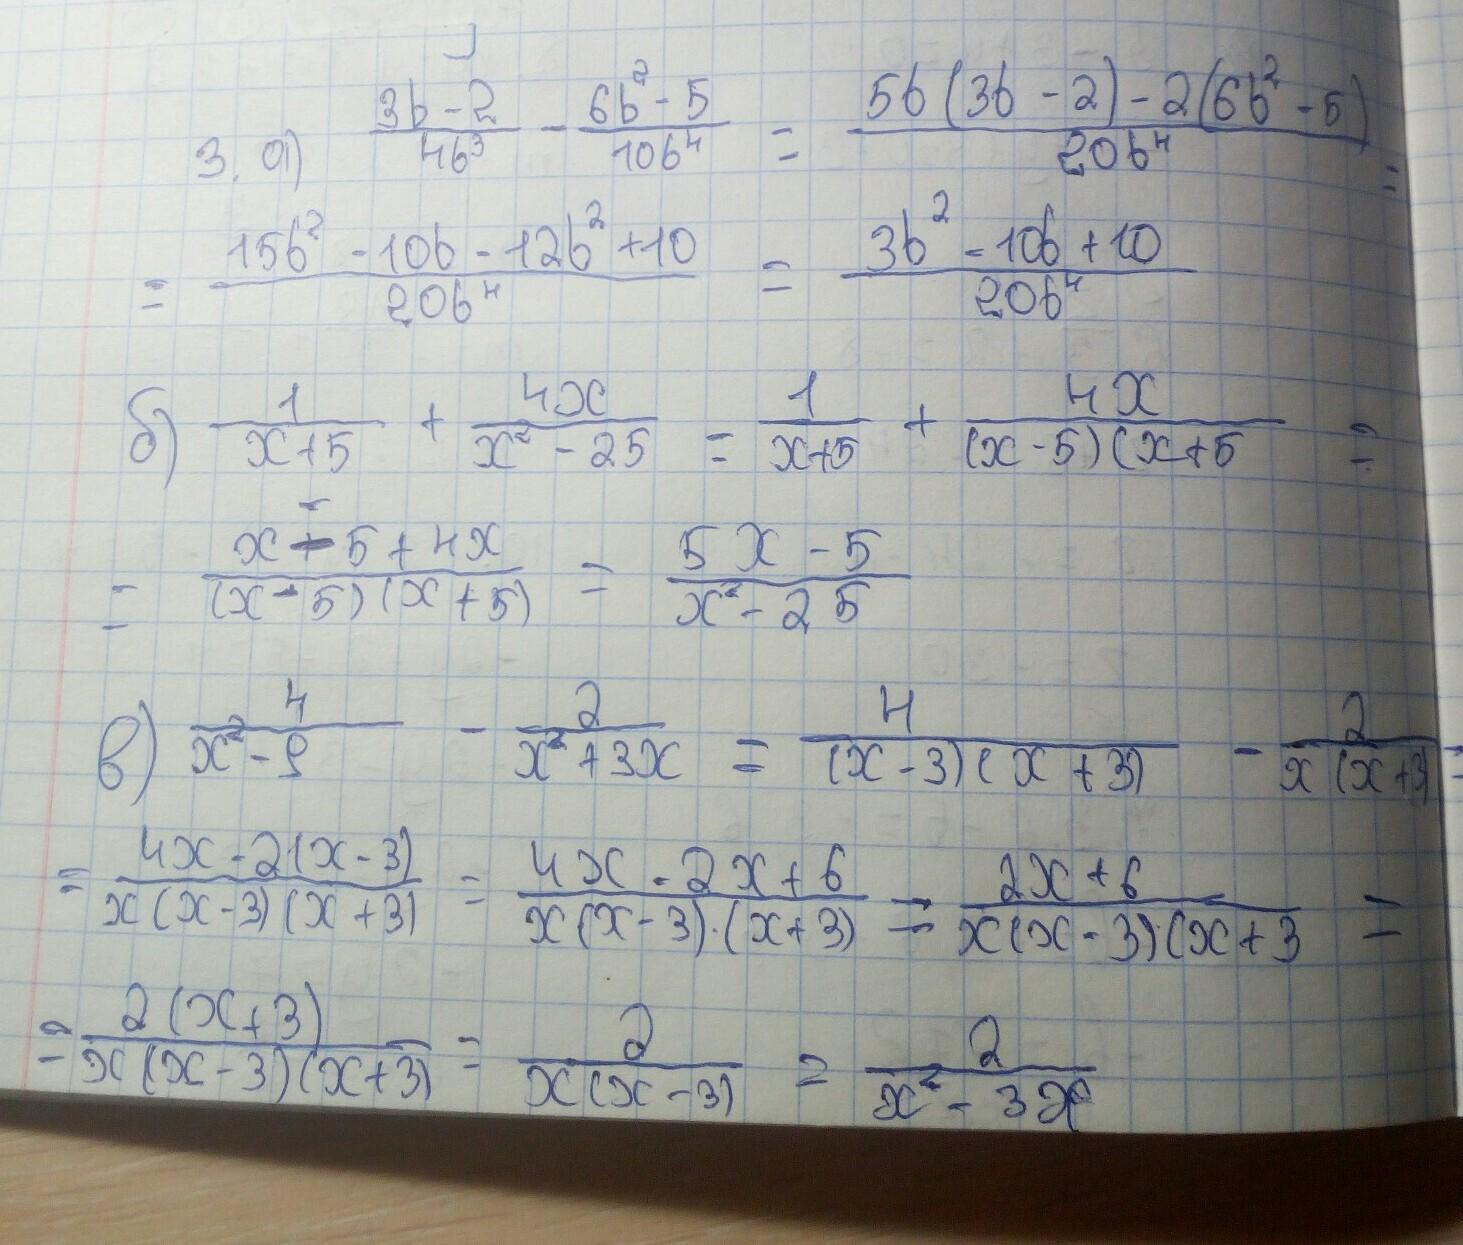 3. а) (3b - 2)/(4b³) - (6b² - 5)/(10b⁴) = (5b(3b - 2) - 2(6b² - 5))/(20b⁴) =
= (15b² - 10b - 12b² + 10)/(20b⁴) = (3b² - 10b + 10)/(20b⁴)
б) 1/(x+5) + 4x/(x² - 25) = 1/(x+5) + 4x/((x-5)(x+5) =
= (x - 5 + 4x)/((x-5)(x+5)) = (5x - 5)/(x² - 25)
в) 4/(x² - 9) - 2/(x² + 3x) = 4/((x-3)(x+3)) - 2/(x(x+3) =
= (4x - 2(x-3))/(x(x-3)(x+3)) = (4x - 2x + 6)/(x(x-3)·(x+3)) = (2x + 6)/(x(x-3)·(x+3 =
= (2(x+3))/(x(x-3)(x+3)) = 2/(x(x-3)) = 2/(x² - 3x)